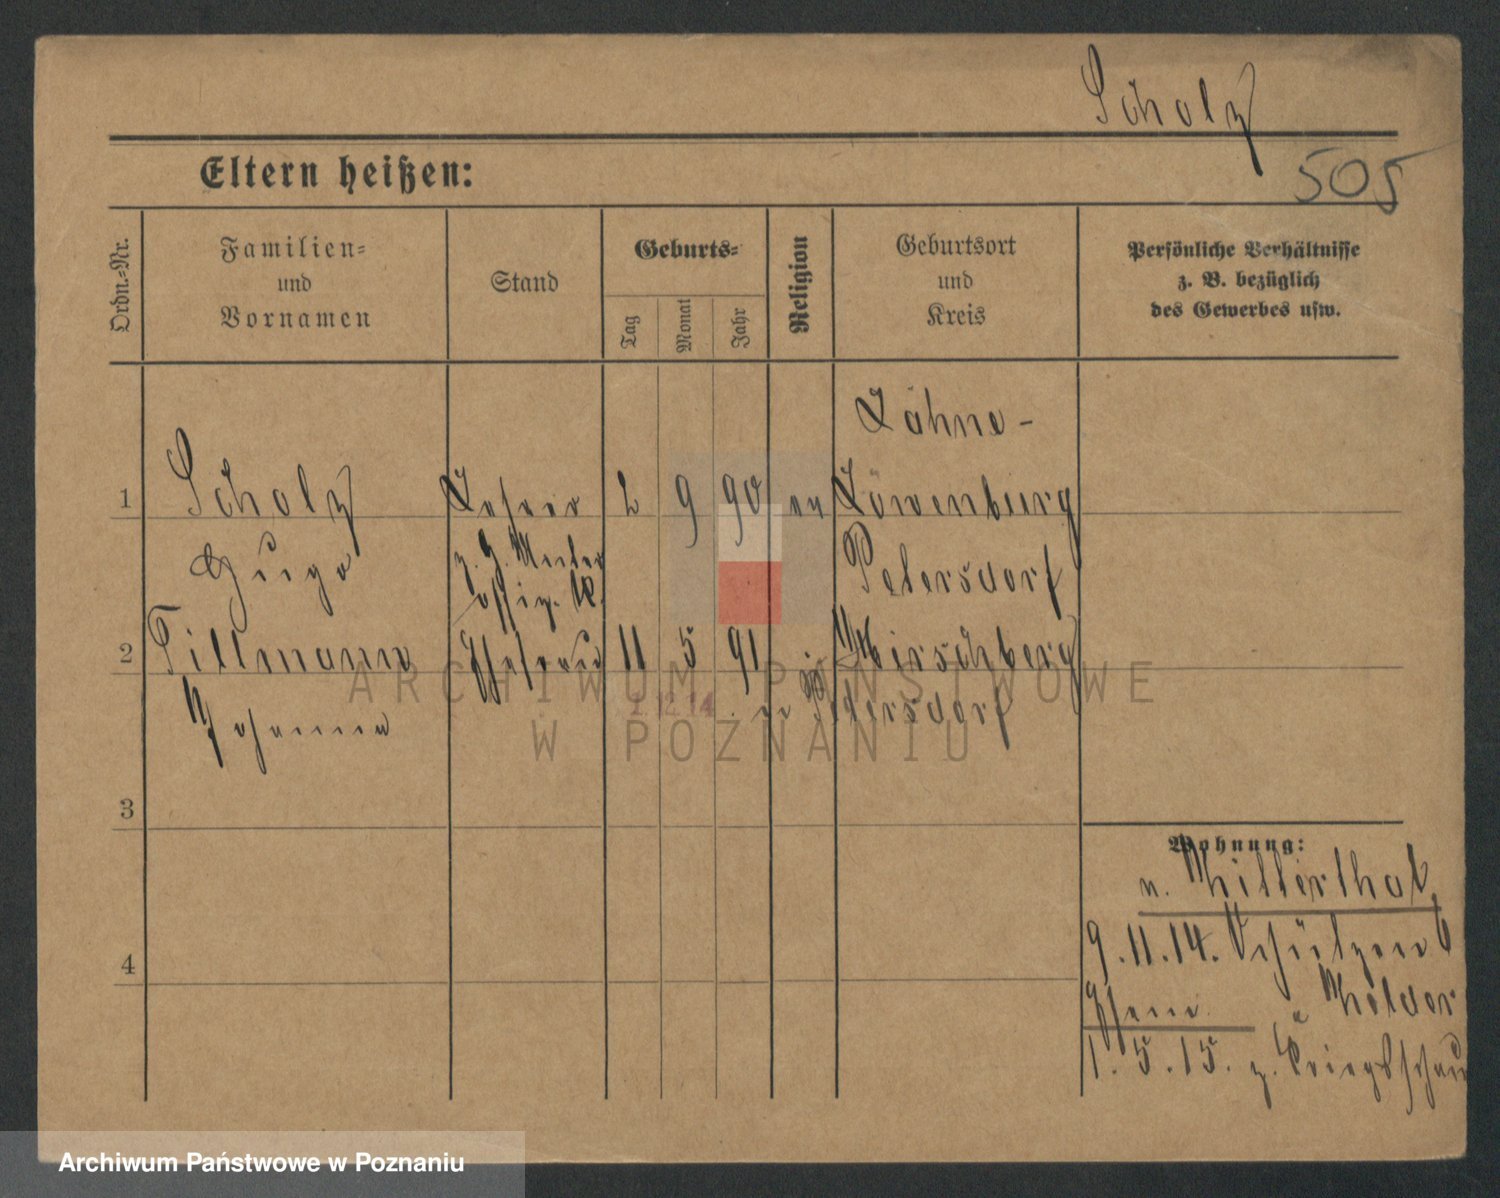 Scholz
505
Eltern heißen:
Ordn.-Nr.
Familien-
und
Vornamen
Stand
Geburts-
Tag
Monat
Jahr
Religion
Geburtsort
und
Kreis
Persönliche Verhältnisse
z. B. bezüglich
des Gewerbes usw.
1
Scholz
Hugo
Lehrer
z. Z. Unter
offiz.
2
9
90
ev
Lähne-
Löwenburg
2
Tillmann
Johanna
Ehefrau
11
5
91
Petersdorf
Hirschberg
2.12.14
Petersdorf
3
4
Wohnung:
n. Zillerthal
9.11.14. Schützen 6
Ehefrau
1.5.15. z. Kriegsschau
ARCHIWUM PAŃSTWOWE
W POZNANIU
Archiwum Państwowe w Poznaniu